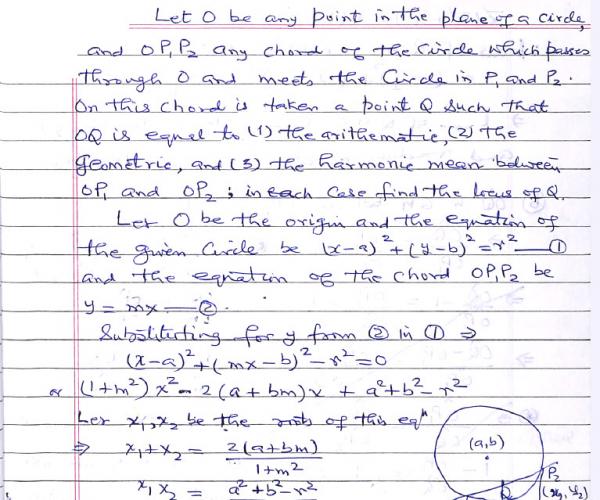 Let O be any point in the plane of a circle,
and OP₁P₂ any chord of the circle which passes
through O and meets the Circle in P₁ and P₂.
On this chord is taken a point Q such that
OQ is equal to (1) the arithematic, (2) the
geometric, and (3) the harmonic mean between
OP₁ and OP₂; in each case find the locus of Q.
Let O be the origin and the equation of
the given Circle be (x-a)²+(y-b)²=r² — ①
and the equation of the chord OP₁P₂ be
y = mx — ②.
Substituting for y from ② in ① ⇒
(x-a)²+(mx-b)²-r²=0
or (1+m²)x²-2(a+bm)x + a²+b²-r²
Let x₁,x₂ be the roots of this eqⁿ
⇒ x₁+x₂ = 2(a+bm)/(1+m²)
(a,b)
x₁x₂ = a²+b²-r²
Q
P₂
(x₂,y₂)